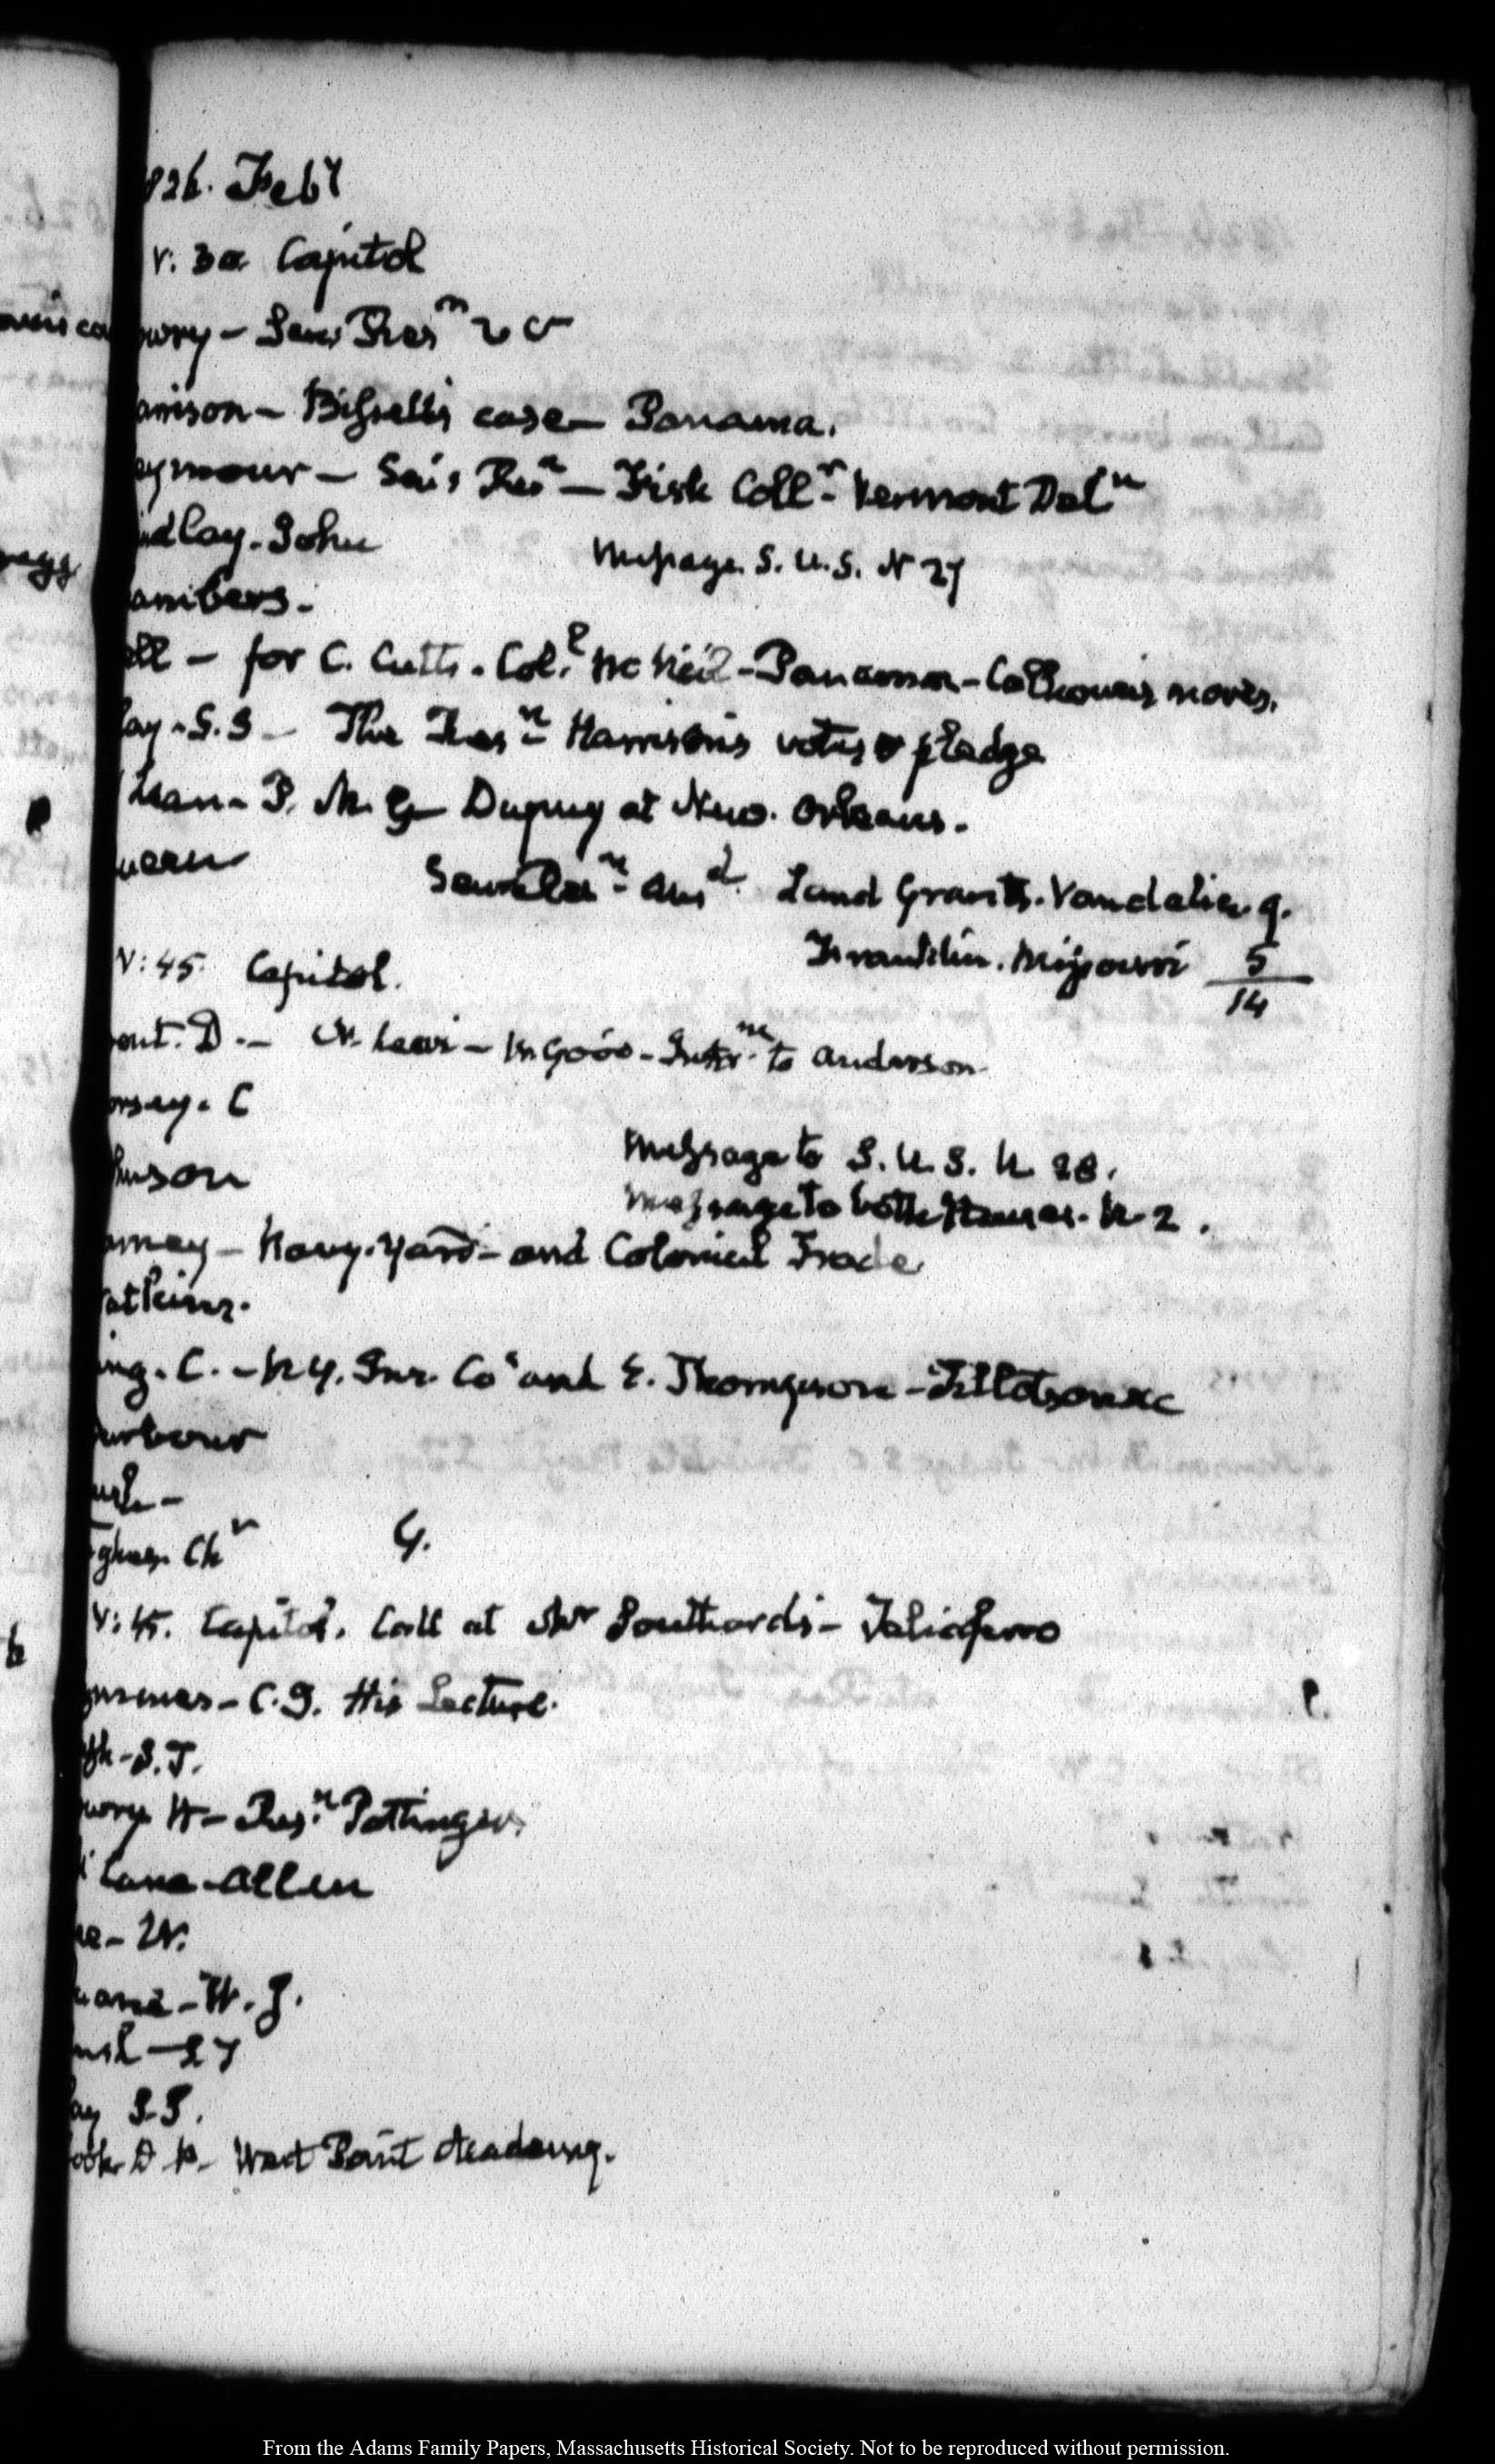 826. Feb.y
V: 30 Capitol
owry - Sen's Res.n
arrison - Bissell's case - Panama.
eymour - Sen's Res.n - Fisk Coll.r Vermont Del.n
ndlay. John
Message. S. U.S. N 27
ambers.
ell - for C. Cutts. Col.l McNeil - Panama - Calhoun's moves.
lay. S.S - The Res.n Harrison's votes & pledge
Lean. P. M. G Dupuy at New. Orleans.
Senate Res.n ans.d Land Grants. Vandalia 9.
Franklin. Missouri 5
14
V: 45. Capitol.
ent. D. - to Anderson
orsey. C
hnson
Message to S. U. S. N 28.
Message to both Houses. N 2.
orney - Navy. Yard - and Colonial Trade
atkins.
ing. C. - N.Y. Ins. Co.s and E. Thompson - Tillotson &c
arbour
ush -
ghes. Ch.r
G.
V: 45. Capitol. Call at Mr Southard's - Taliaferro
- C.S. His Lecture.
th - S.T.
owry. W - Res.n Pottinger.
Lane - Allen
W.
uane - W. J.
ay S.S.
ook. D P. - West Point Academy.
From the Adams Family Papers, Massachusetts Historical Society. Not to be reproduced without permission.